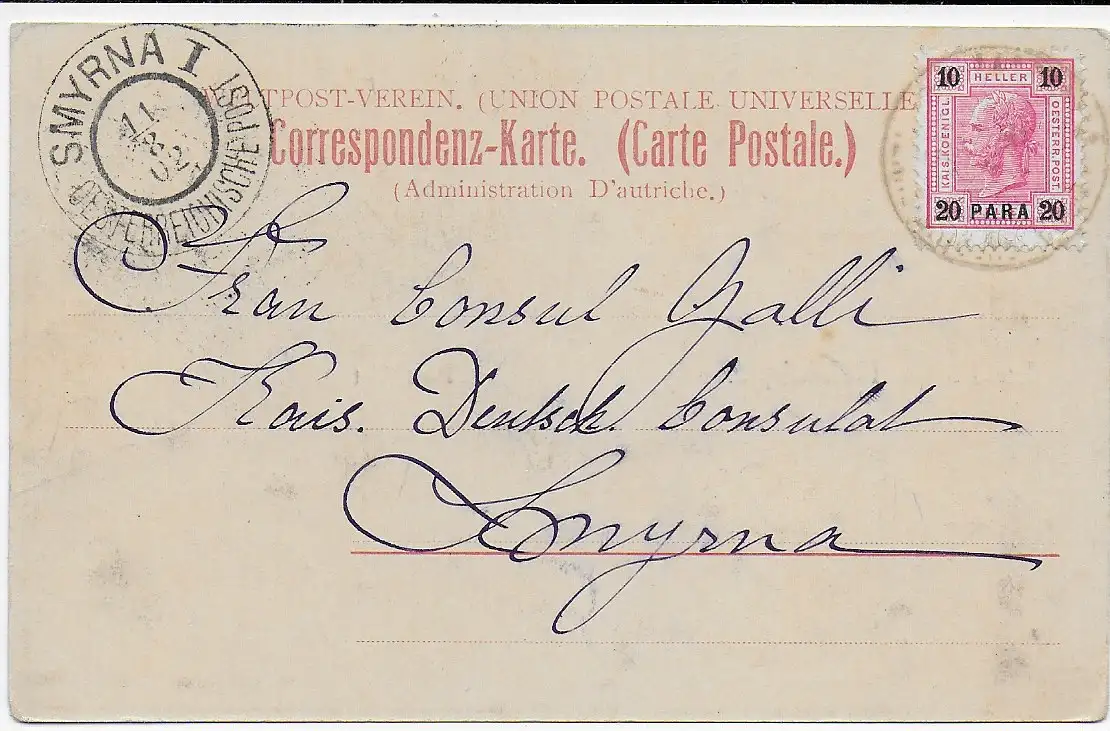 SMYRNA I
11
8
02
OESTERREICHISCHE POST
TPOST-VEREIN. (UNION POSTALE UNIVERSELLE
Correspondenz-Karte. (Carte Postale.)
(Administration D'autriche.)
10 HELLER 10
KAIS. KOENIGL.
OESTERR. POST
20 PARA 20
Frau Consul Galli
Kais. Deutsch Consulat
Smyrna